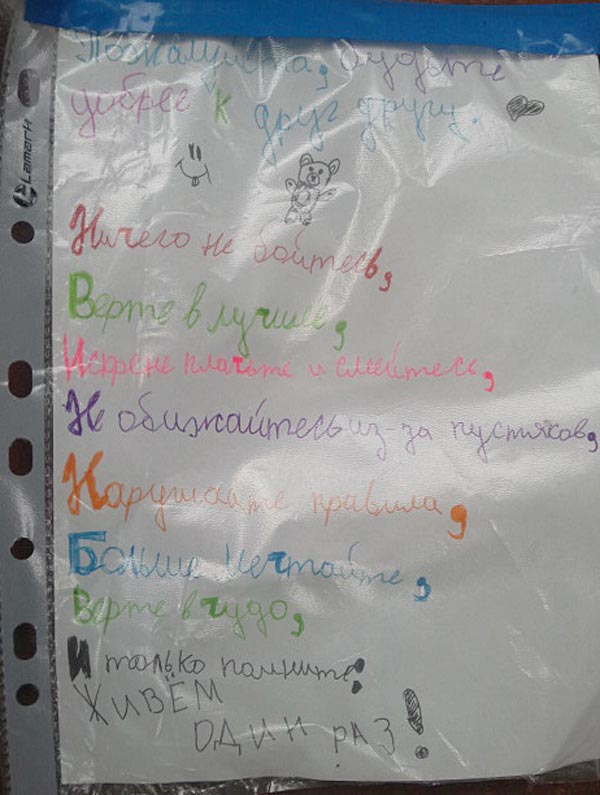 Пожалуйста, будьте
добрее к друг другу.
Lamark
Ничего не бойтесь,
Верте в лучшие,
Искрене плачьте и смейтесь,
Не обижайтесь из-за пустяков,
Нарушайте правила,
Больше мечтайте,
Верте в чудо,
И только помните:
ЖИВЁМ
ОДИН РАЗ!